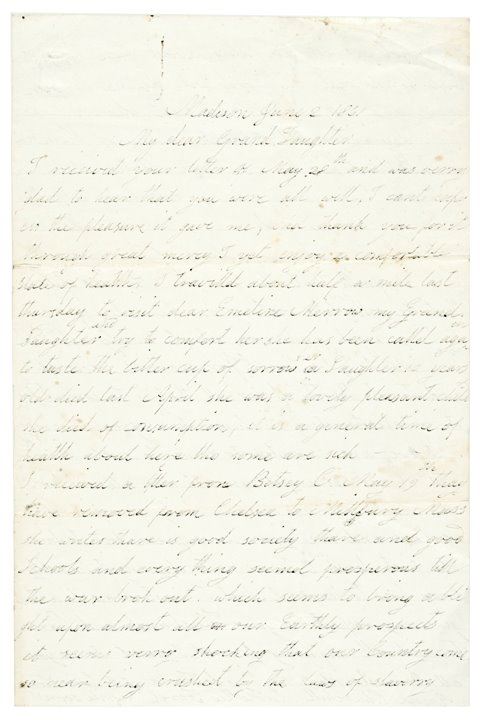 Madison June 2 1861
My dear Grand Daughter
I received your letter of May 28th and was verry
glad to hear that you were all well, I cant
the pleasure it gave me, and thank you for it
through great mercy I yet enjoy a comfortable
state of health, I travilld about half a mile last
thursday to visit dear Emeline Merrow my Grand
Daughter & try to comfort her she has been calld again
to taste the bitter cup of sorrow a Daughter years
old died last April she was a lovely pleasant child
she died of consumption, it is a general time of
health about here tho some are sick
I received a leter from Betsey C May 19th they
have removed from Chelsea to Millbury Mass
she writes thare is good society thare and good
schools and every thing seemed prosperous till
the war brok out. which seems to bring a bli
ght upon almost all our Earthly prospects
it seems verry shocking that our Country come
so near being crushed by the of slavery